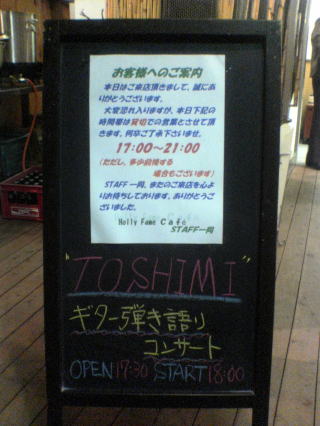 お客様へのご案内
本日はご来店頂きまして、誠にあ
りがとうございます。
大変恐れ入りますが、本日下記の
時間帯は貸切での営業とさせて頂
きます。何卒ご了承下さいませ。
17:00~21:00
(ただし、多少前後する
場合もございます)
STAFF一同、またのご来店を心よ
りお待ちしております。ありがとうござ
いました。
Holly Fame Cafe
STAFF一同
"TOSHIMI"
ギター弾き語り
コンサート
OPEN 17:30 START 18:00